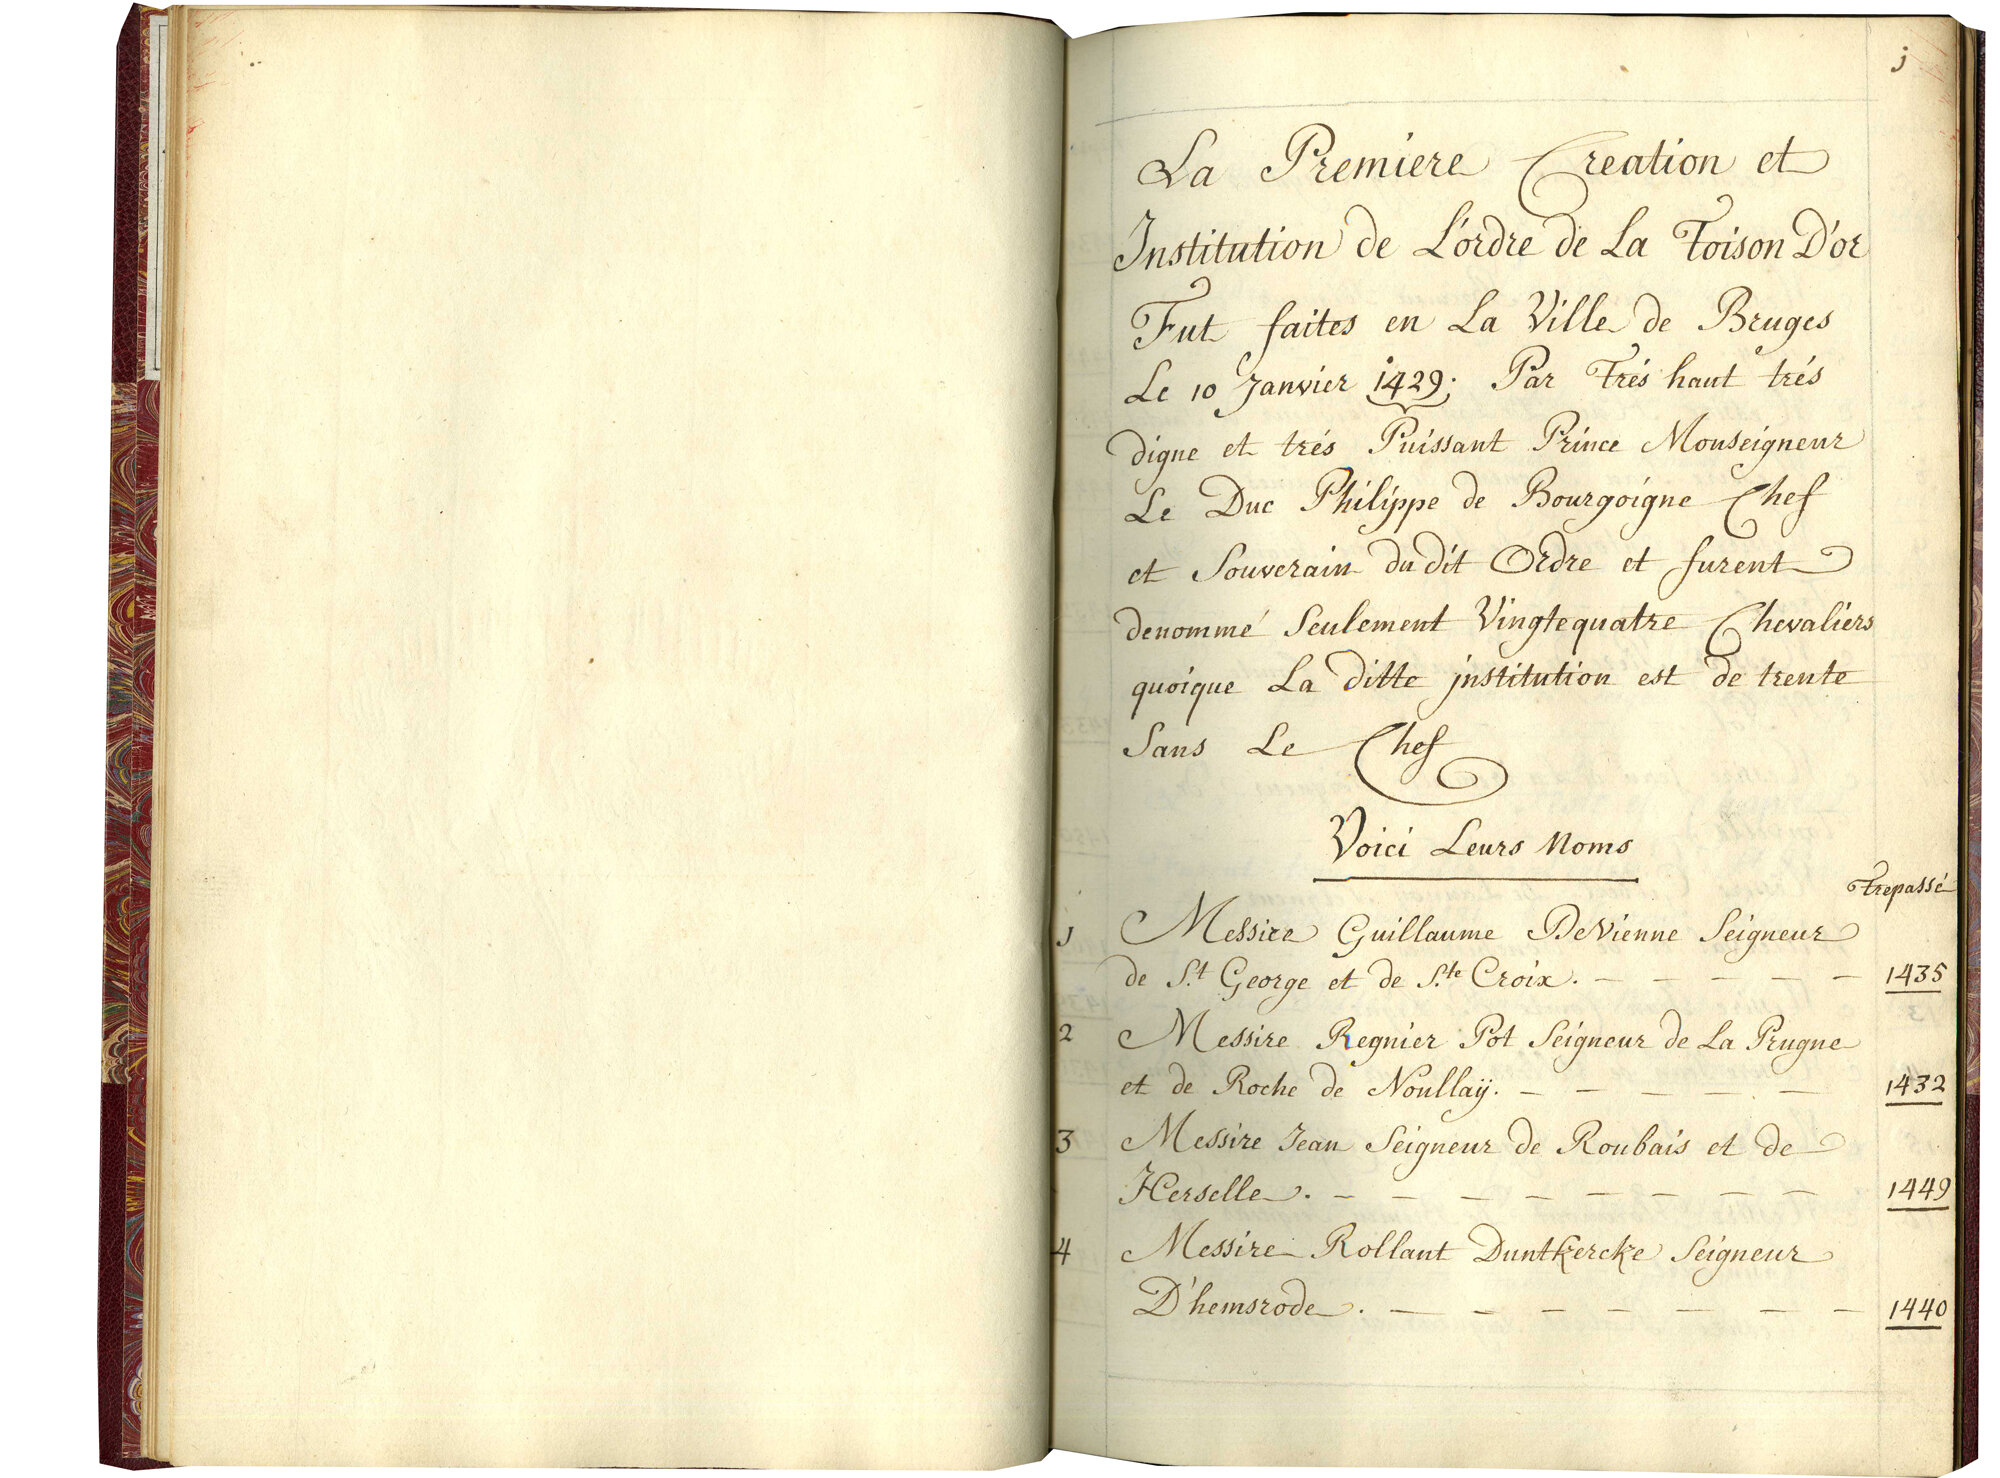 j
La Premiere Creation et
Institution de L'ordre de La Toison D'or
Fut faites en La Ville de Bruges
Le 10 Janvier 1429. Par Trés haut trés
digne et trés Puissant Prince Monseigneur
Le Duc Philippe de Bourgoigne Chef
et Souverain du dit Ordre et furent
denommé Seulement Vingtequatre Chevaliers
quoique La ditte institution est de trente
Sans Le Chef
Voici Leurs Noms
Trepassé
1 Messire Guillaume DeVienne Seigneur
de S.t George et de S.te Croix. - - - - - 1435
2 Messire Regnier Pot Seigneur de La Prugne
et de Roche de Noullaÿ. - - - - - 1432
3 Messire Jean Seigneur de Roubais et de
Herselle. - - - - - - - - 1449
4 Messire Rollant Duntkercke Seigneur
D'hemsrode. - - - - - - - 1440